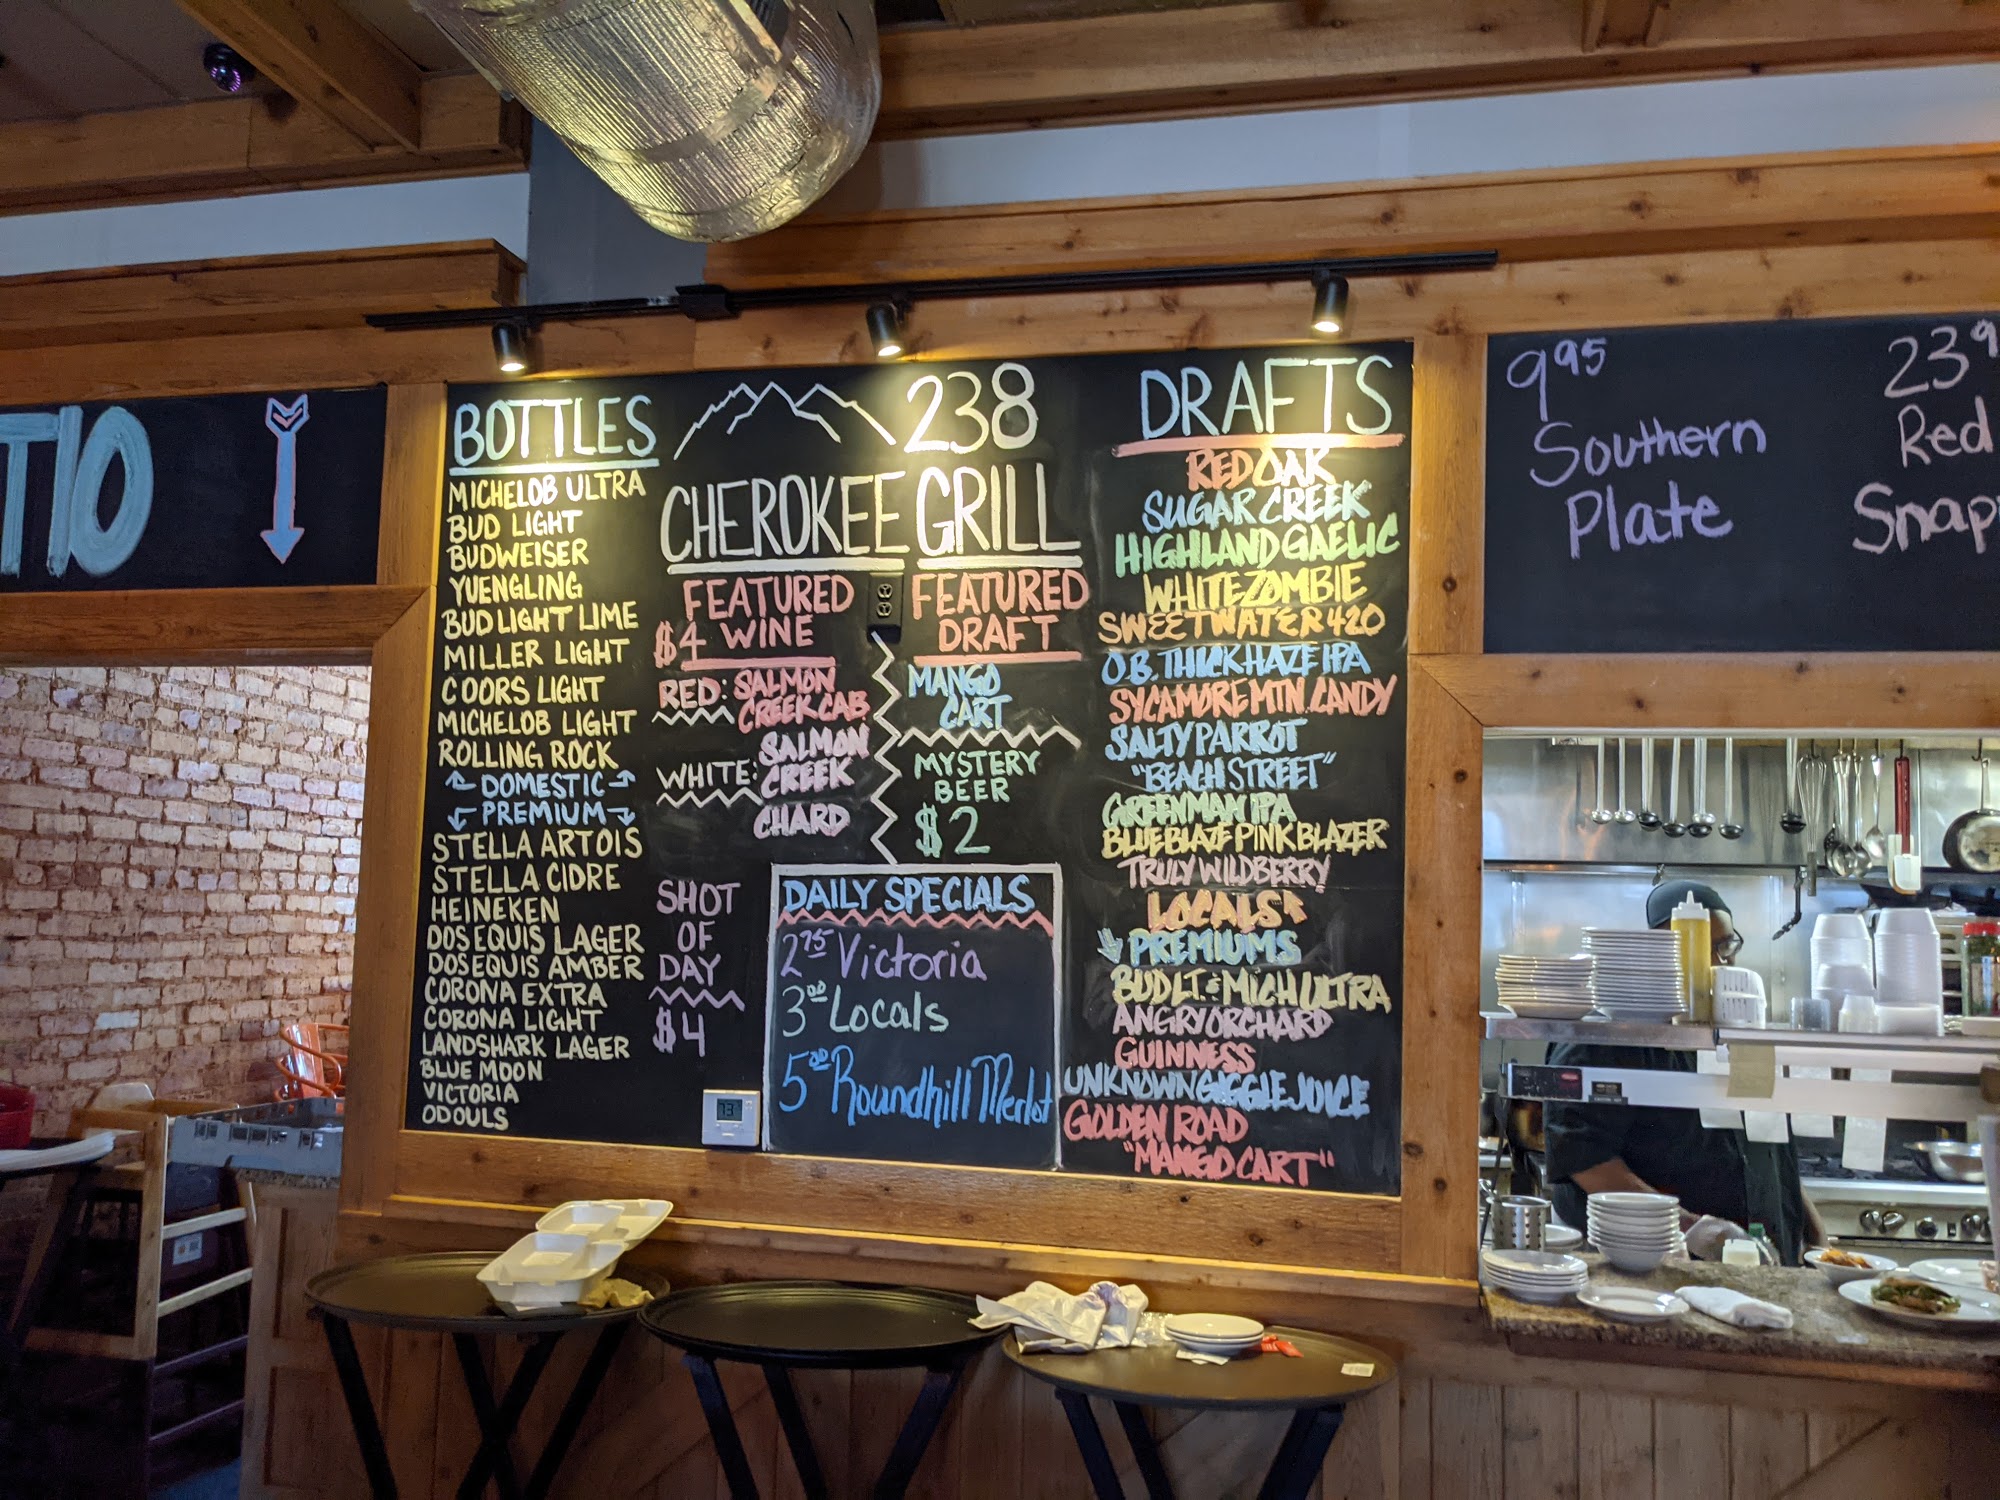 TIO
BOTTLES
MICHELOB ULTRA
BUD LIGHT
BUDWEISER
YUENGLING
BUD LIGHT LIME
MILLER LIGHT
COORS LIGHT
MICHELOB LIGHT
ROLLING ROCK
DOMESTIC
PREMIUM
STELLA ARTOIS
STELLA CIDRE
HEINEKEN
DOS EQUIS LAGER
DOS EQUIS AMBER
CORONA EXTRA
CORONA LIGHT
LANDSHARK LAGER
BLUE MOON
VICTORIA
ODOULS
238
CHEROKEE GRILL
FEATURED
$4 WINE
RED: SALMON
CREEK CAB
WHITE: SALMON
CREEK
CHARD
SHOT
OF
DAY
$4
FEATURED
DRAFT
MANGO
CART
MYSTERY
BEER
$2
DAILY SPECIALS
2.75 Victoria
3.00 Locals
5.00 Roundhill Merlot
73
DRAFTS
RED OAK
SUGAR CREEK
HIGHLAND GAELIC
WHITE ZOMBIE
SWEETWATER 420
O.B. THICK HAZE IPA
SYCAMORE MTN. CANDY
SALTY PARROT
"BEACH STREET"
GREENMAN IPA
BLUE BLAZE PINK BLAZER
TRULY WILDBERRY
LOCALS
PREMIUMS
BUD LT. & MICH ULTRA
ANGRY ORCHARD
GUINNESS
UNKNOWN GIGGLE JUICE
GOLDEN ROAD
"MANGO CART"
9.95
Southern
Plate
23.9
Red
Snap